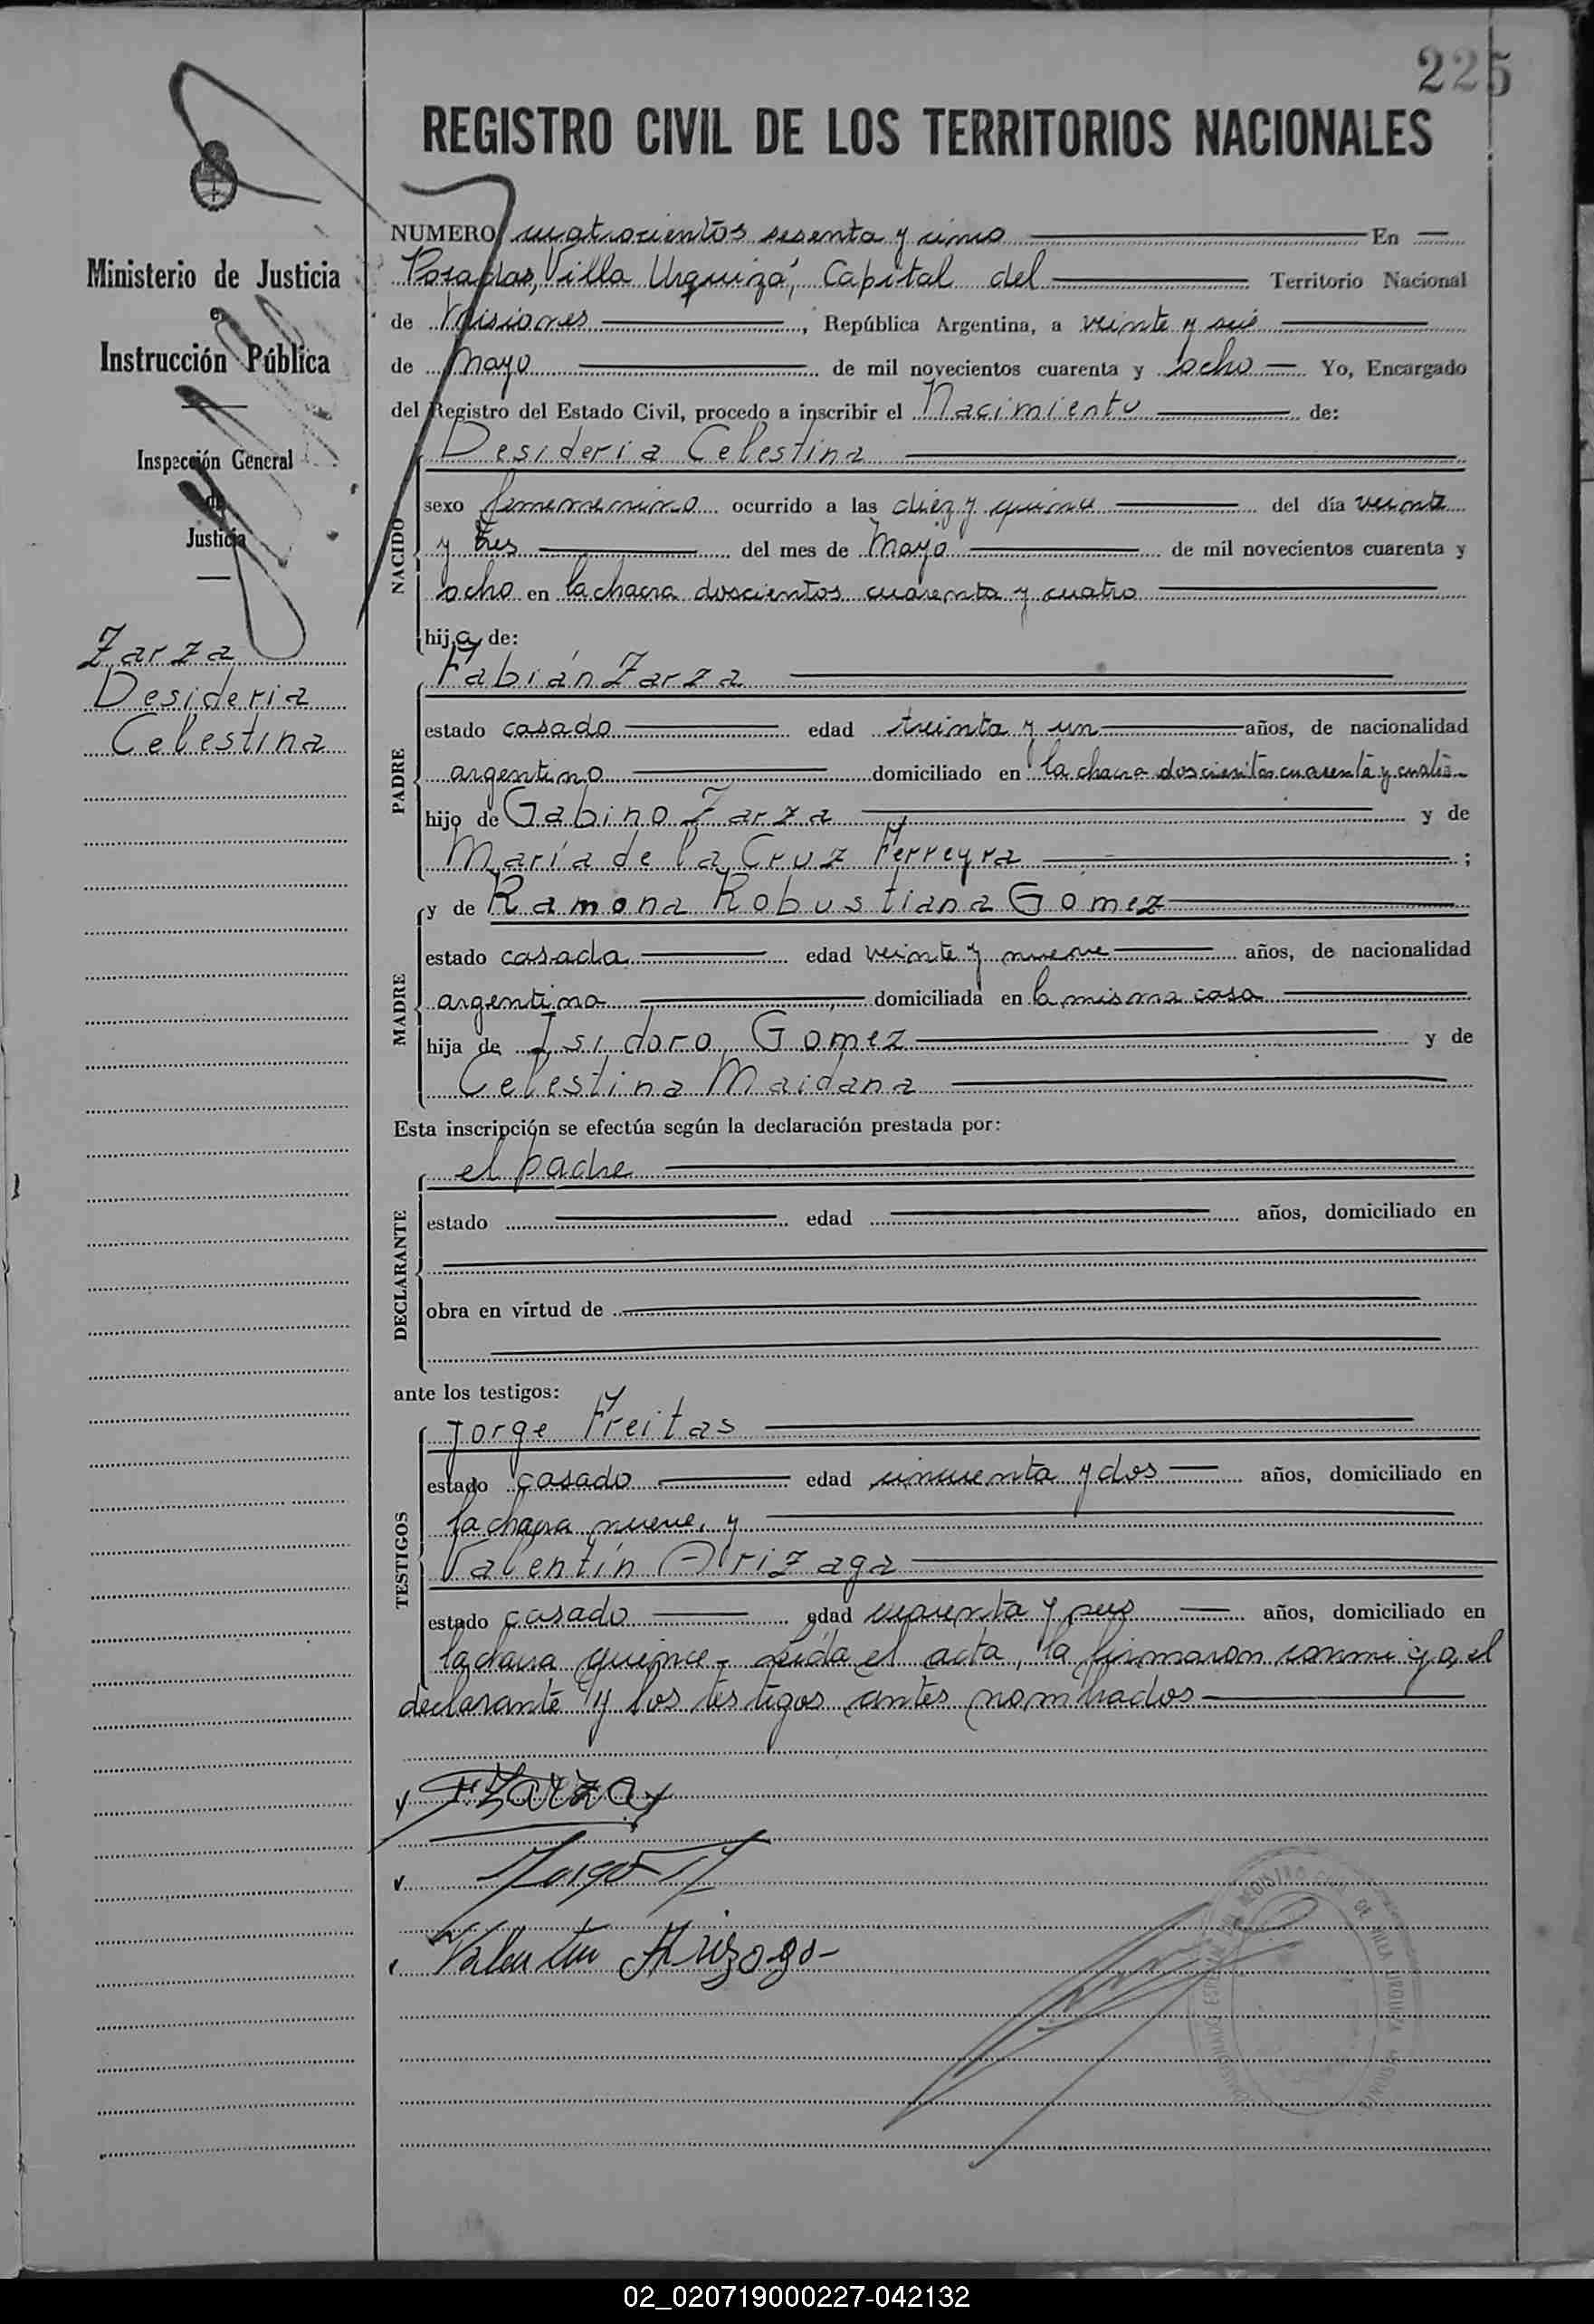 225
REGISTRO CIVIL DE LOS TERRITORIOS NACIONALES
Ministerio de Justicia
e
Instrucción Pública
Inspección General
de
Justicia
Zarza
Desideria
Celestina
NUMERO cuatrocientos sesenta y cinco En
Posadas, Villa Urquiza, Capital del Territorio Nacional
de Misiones, República Argentina, a veinte y seis
de Mayo de mil novecientos cuarenta y ocho Yo, Encargado
del Registro del Estado Civil, procedo a inscribir el Nacimiento de:
Desideria Celestina
NACIDO
sexo ocurrido a las diez y quince del día veinte
y tres del mes de Mayo de mil novecientos cuarenta y
ocho en la chacra doscientos cuarenta y cuatro
hija de:
Fabián Zarza
PADRE
estado casado edad treinta y un años, de nacionalidad
argentino domiciliado en la chacra doscientos cuarenta y cuatro
hijo de Gabino Zarza y de
María de la Cruz Ferreyra ;
MADRE
y de Ramona Robustiana Gomez
estado casada edad veinte y nueve años, de nacionalidad
argentina domiciliada en la misma casa
hija de Isidoro Gomez y de
Celestina Maidana
Esta inscripción se efectúa según la declaración prestada por:
DECLARANTE
el padre
estado edad años, domiciliado en
obra en virtud de
ante los testigos:
TESTIGOS
Jorge Freitas
estado casado edad cincuenta y dos años, domiciliado en
la chacra nueve, y
Valentín Arizaga
estado casado edad cuarenta y seis años, domiciliado en
la chacra quince - Leida el acta, la firmaron conmigo, el
declarante y los testigos antes nombrados
F Zarza
Jorge F
Valentin Arizaga
02_020719000227-042132